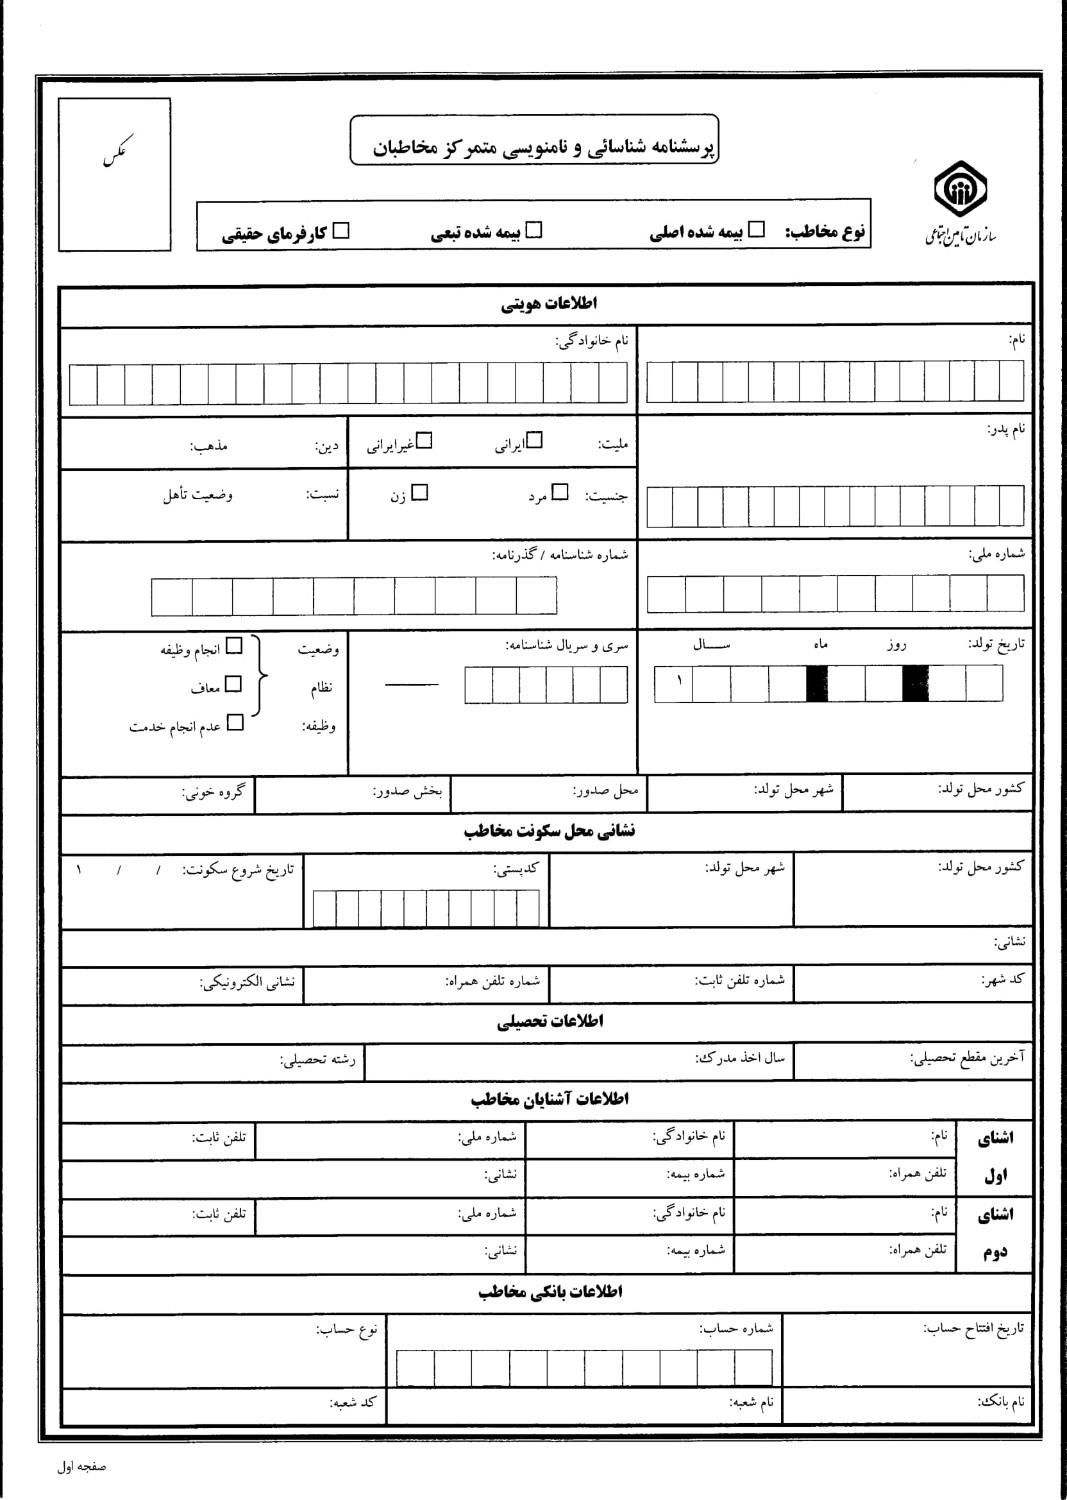 عکس
پرسشنامه شناسائی و نامنویسی متمرکز مخاطبان
سازمان تامین اجتماعی
نوع مخاطب: □ بیمه شده اصلی □ بیمه شده تبعی □ کارفرمای حقیقی
اطلاعات هویتی
نام: نام خانوادگی:
نام پدر: ملیت: □ ایرانی □ غیرایرانی دین: مذهب:
جنسیت: □ مرد □ زن نسبت: وضعیت تأهل
شماره ملی: شماره شناسنامه / گذرنامه:
تاریخ تولد: روز ماه ســـال سری و سریال شناسنامه: وضعیت □ انجام وظیفه
۱ نظام □ معاف
وظیفه: □ عدم انجام خدمت
کشور محل تولد: شهر محل تولد: محل صدور: بخش صدور: گروه خونی:
نشانی محل سکونت مخاطب
کشور محل تولد: شهر محل تولد: کدپستی: تاریخ شروع سکونت: / / ۱
نشانی:
کد شهر: شماره تلفن ثابت: شماره تلفن همراه: نشانی الکترونیکی:
اطلاعات تحصیلی
آخرین مقطع تحصیلی: سال اخذ مدرک: رشته تحصیلی:
اطلاعات آشنایان مخاطب
اشنای نام: نام خانوادگی: شماره ملی: تلفن ثابت:
اول تلفن همراه: شماره بیمه: نشانی:
اشنای نام: نام خانوادگی: شماره ملی: تلفن ثابت:
دوم تلفن همراه: شماره بیمه: نشانی:
اطلاعات بانکی مخاطب
تاریخ افتتاح حساب: شماره حساب: نوع حساب:
نام بانک: نام شعبه: کد شعبه:
صفحه اول